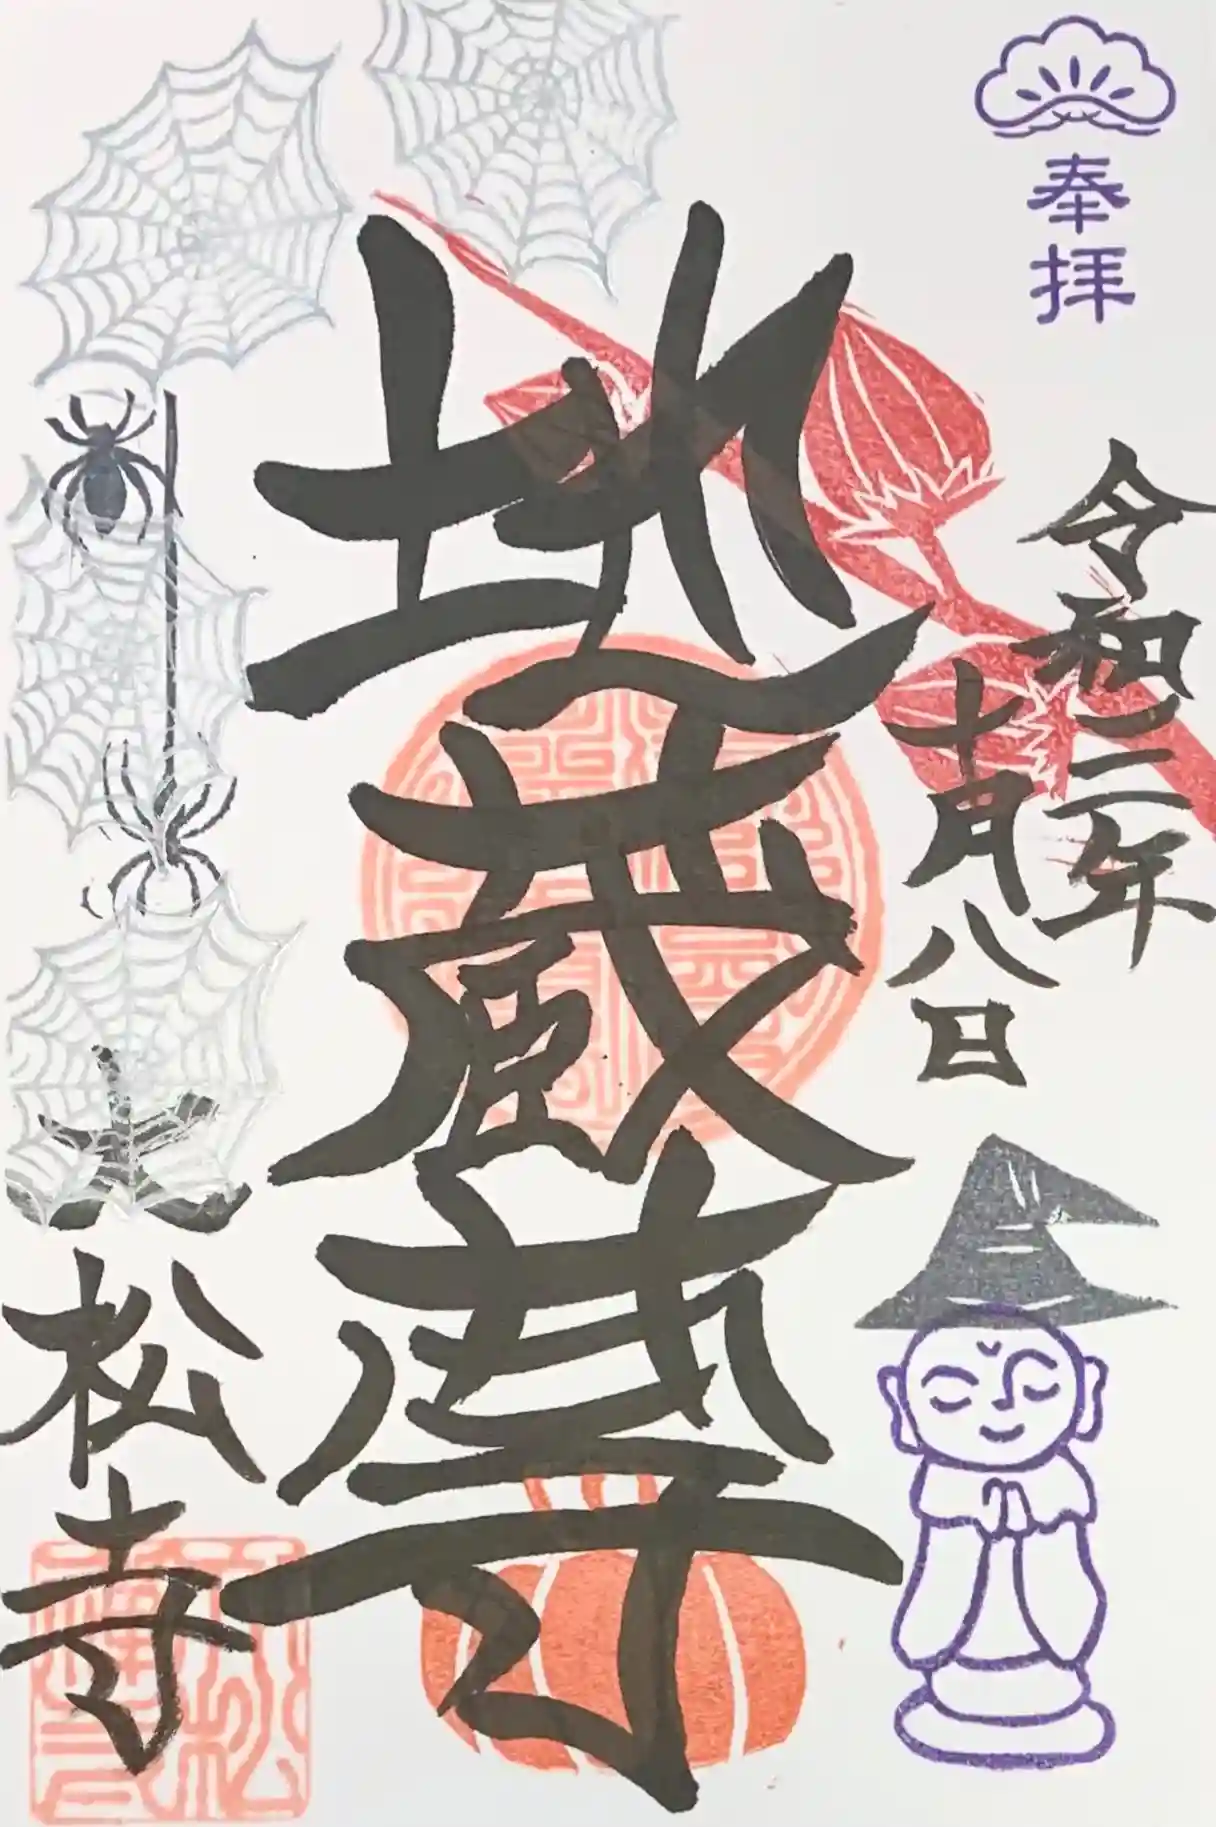 奉拝
令和二年
十月八日
地蔵尊
松寺